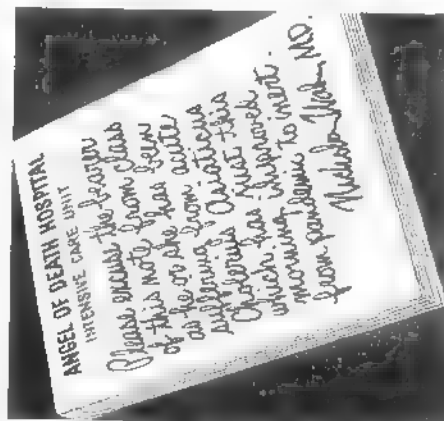 ANGEL OF DEATH HOSPITAL
INTENSIVE CARE UNIT
Please excuse the bearer
of this note from class
as he or she has been
suffering from acute
Asiaticus
which has just this
morning improved
from to inert.
Nicholas MD.